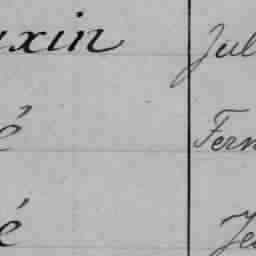 uxin Jul
é Fern
é Je